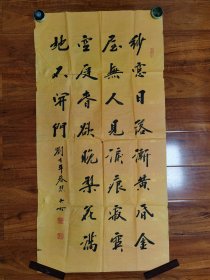 紗窓日落漸黄昏金
屋無人見淚痕寂寞
空庭春欲晚梨花滿
地不開門 劉方平春怨